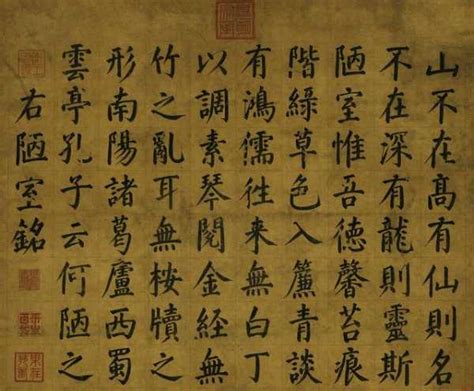 山不在高有仙則名
不在深有龍則靈斯
陋室惟吾德馨苔痕
階綠草色入簾青談
有鴻儒往来無白丁
以調素琴閱金經無
竹之亂耳無桉牘之
形南陽諸葛廬西蜀
雲亭孔子云何陋之
右陋室銘